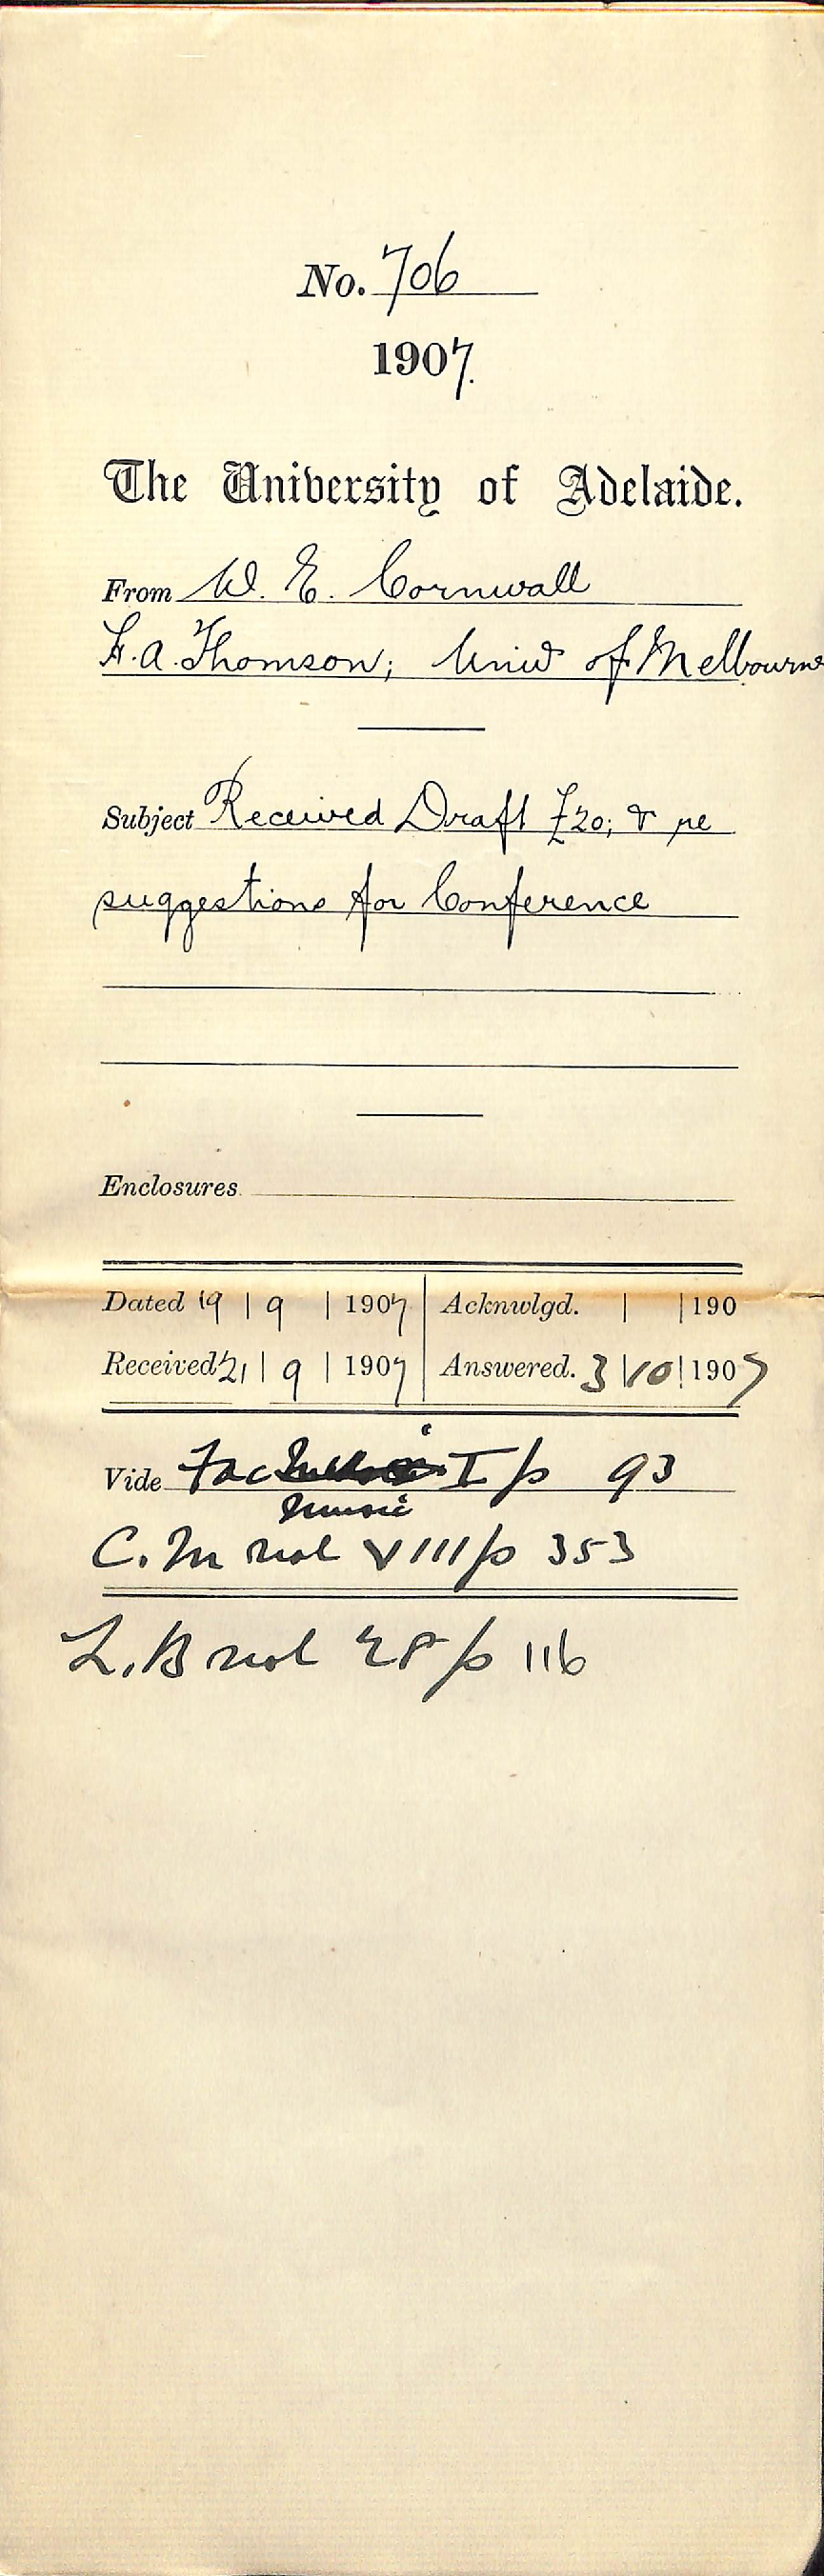 No. 706
1907.
The University of Adelaide.
From W. E. Cornwall
F. A. Thomson; Univ of Melbourne
Subject Received Draft £20; & re
suggestions for Conference
Enclosures
Dated 19 | 9 | 1907 | Acknwlgd. | | 190
Received 21 | 9 | 1907 | Answered. 3 | 10 | 1907
Vide Fac I p 93
Music
C. M vol VIII p 353
L. B vol 28 p 116